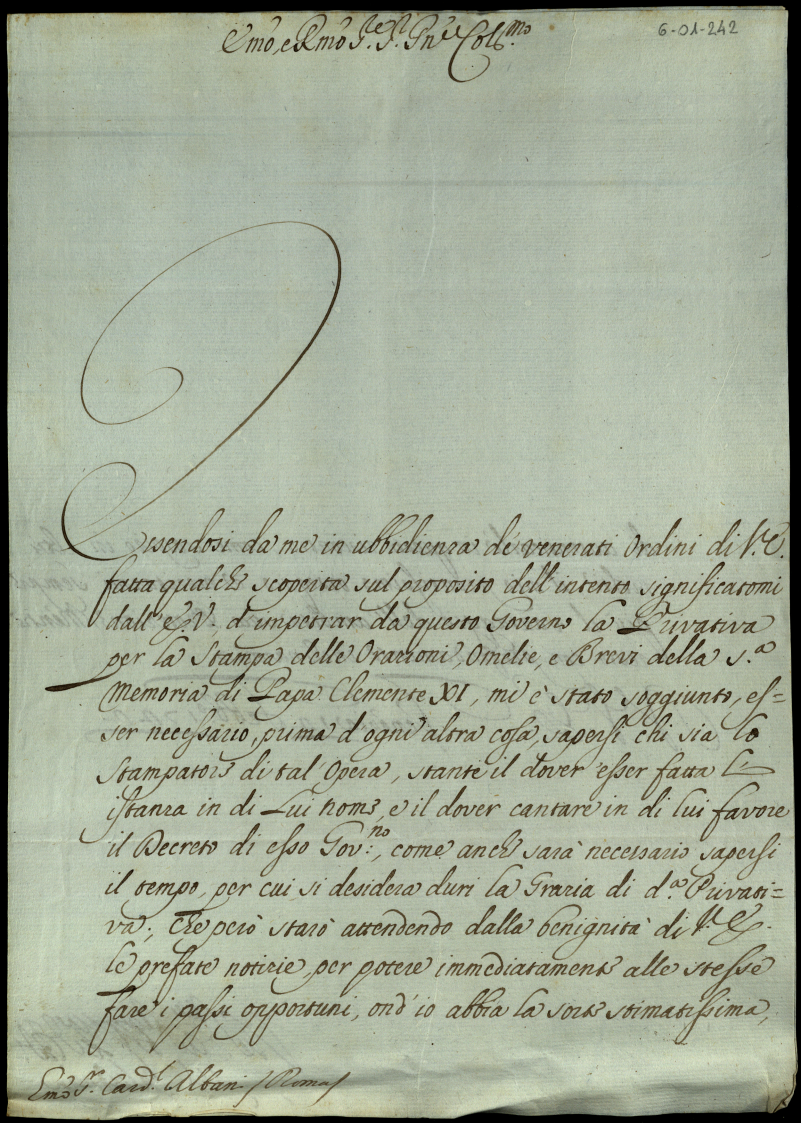 6-01-242
Emo, e Rmo Sre Sr. Pne Col.mo
Essendosi da me in ubbidienza de' venerati Ordini di V. E.
fatta qualche scoperta sul proposito dell'intento significatomi
dall'E.V. d'impetrar da questo Governo la Privativa
per la Stampa delle Orazioni, Omelie, e Brevi della s.a
Memoria di Papa Clemente XI, mi è stato soggiunto, es=
ser necessario, prima d'ogni altra cosa, sapersi chi sia lo
Stampatore di tal Opera, stante il dover esser fatta l'
istanza in di Lui nome, e il dover cantare in di lui favore
il Decreto di esso Gov.no, come anche sarà necessario sapersi
il tempo, per cui si desidera duri la Grazia di d.a Privati=
va; che però starò attendendo dalla benignità di V. E.
le prefate notizie, per potere immediatamente alle stesse
fare i passi opportuni, ond'io abbia la sorte stimatissima,
Emo Sr. Card.l Albani /Roma/